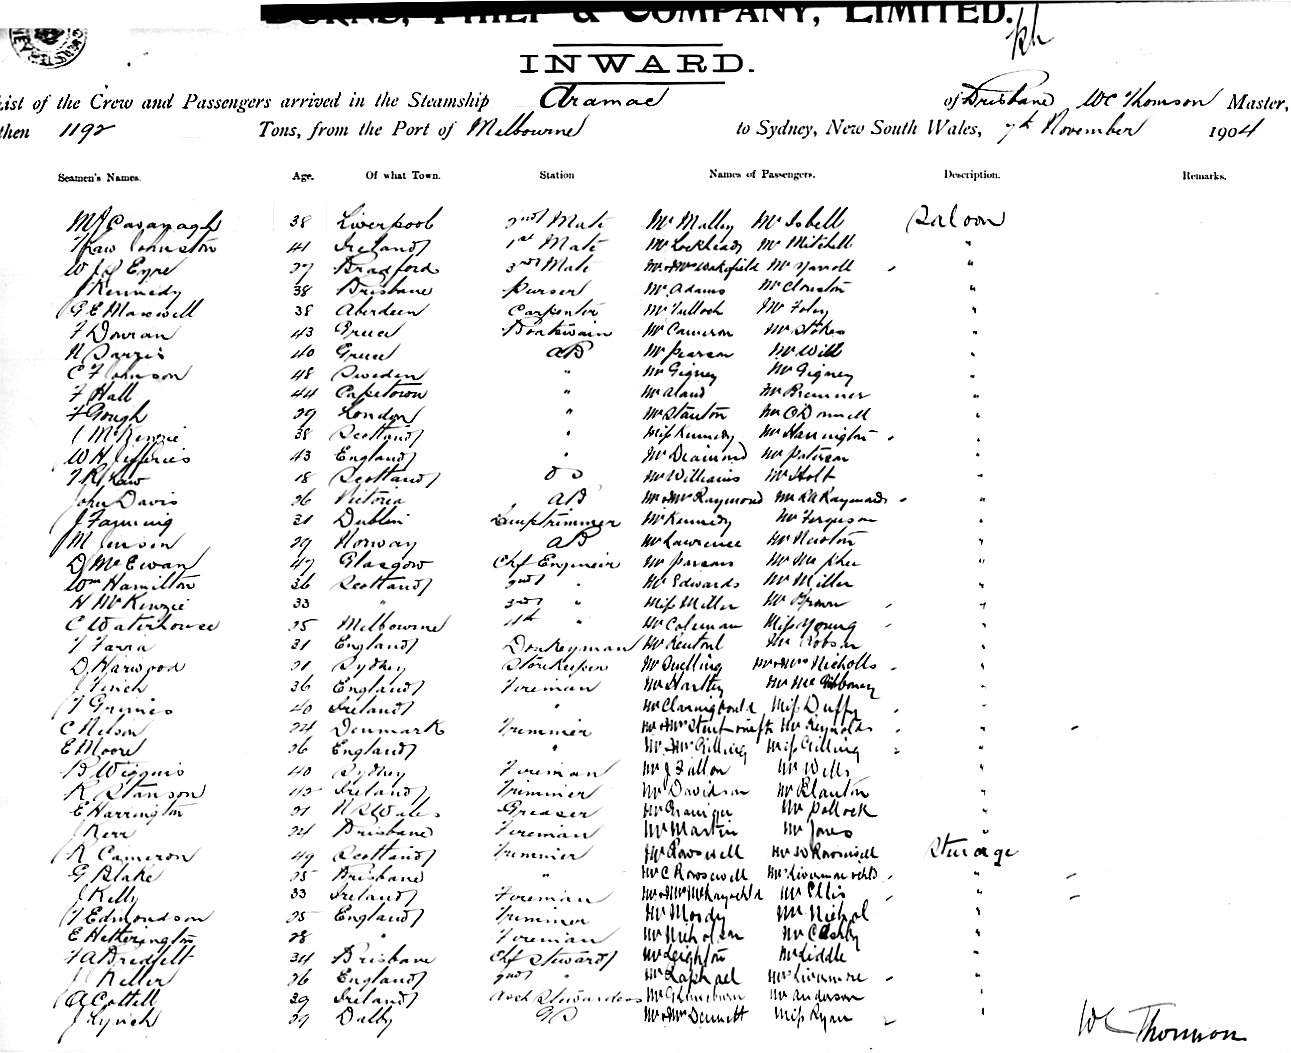 BURNS, PHILP & COMPANY, LIMITED.
INWARD.
List of the Crew and Passengers arrived in the Steamship Aramac of Brisbane WC Thomson Master,
then 1192 Tons, from the Port of Melbourne to Sydney, New South Wales, 7th November 1904
Seamen's Names. Age. Of what Town. Station Names of Passengers. Description. Remarks.
M J Cavanagh 38 Liverpool 2nd Mate Mr Malley Mr Isbell Saloon
Johnston 41 Ireland 1st Mate Mr Lockhead Mr Mitchell "
W J S Eyre 27 Bradford 3rd Mate Mr & Mrs Wakefield Mr Yarroll "
J Kennedy 38 Brisbane Purser Mr Adams Mr Clouston "
G E Maxwell 38 Aberdeen Carpenter Mr Tulloch Mr Foley "
43 Greece Boatswain Mr Cameron Mr Stokes "
40 Greece AB Mr Pearson Mr Will "
C F Johnson 48 Sweden " Mr Gigney Mr Gigney "
F Hall 44 Capetown " Mr Aland Mr Bremner "
F Gough 29 London " Mr Stanton Mr O'Donnell "
McKenzie 38 Scotland " Miss Kennedy Mr Harrington "
W H Jefferies 43 England " Mr Diamond Mr Paterson "
Law 18 Scotland OS Mr Williams Mr Holt "
John Davis 26 Victoria AB Mr & Mrs Raymond Mr Raymond "
J Fanning 31 Dublin Lamptrimmer Mr Kennedy Mr Ferguson "
M Jensen 29 Norway AB Mr Lawrence Mr Newton "
D McEwan 47 Glasgow Chf Engineer Mr Parsons Mr McPhee "
Wm Hamilton 36 Scotland 2nd " Mr Edwards Mr Miller "
H McKenzie 33 " 3rd " Miss Miller Mr Brown "
C Waterhouse 25 Melbourne 4th " Mr Coleman Miss Young "
T Farra 31 England Donkeyman Mr Robson "
D Harwood 21 Sydney Storekeeper Mr Snelling Mr & Mrs Nicholls "
J Finch 36 England Fireman Mr Hartley Mr McGibboney "
T Grimes 40 Ireland " Miss Duffy "
C Nelson 24 Denmark Trimmer Mr & Mrs Mr Reynolds "
E Moore 26 England " Mr & Mrs Gilling Miss Gilling "
B Wiggins 40 Sydney Fireman Mr J Fallon Mr Wells "
R Stanson Ireland Trimmer Mr Davidson Mr Blanton "
E Harrington 27 N S Wales Greaser Mr Grainger Mr Pollock "
J Kerr 24 Brisbane Fireman Mr Martin Mr Jones "
R Cameron 49 Scotland Trimmer Mr Roosewell Mr Roosewell Steerage
G Blake 25 Brisbane " Mr C Roosewell "
J Kelly 33 Ireland Fireman Mr & Mrs Mr Ellis "
T Edmondson 25 England Trimmer Mr Moody Mr Nichol "
E Hetherington 28 " Fireman Mr Nicholson Mr C Ashby "
F A Bredfelt 34 Brisbane Chf Steward Mr Leighton Mr Liddle "
J Keller 26 England 2nd " Mr Raphael Mr Livermore "
A Cottell 39 Ireland Stewardess Mr Anderson "
J Lynch 29 Dalby Mr & Mrs Dennett Miss Ryan "
WC Thomson